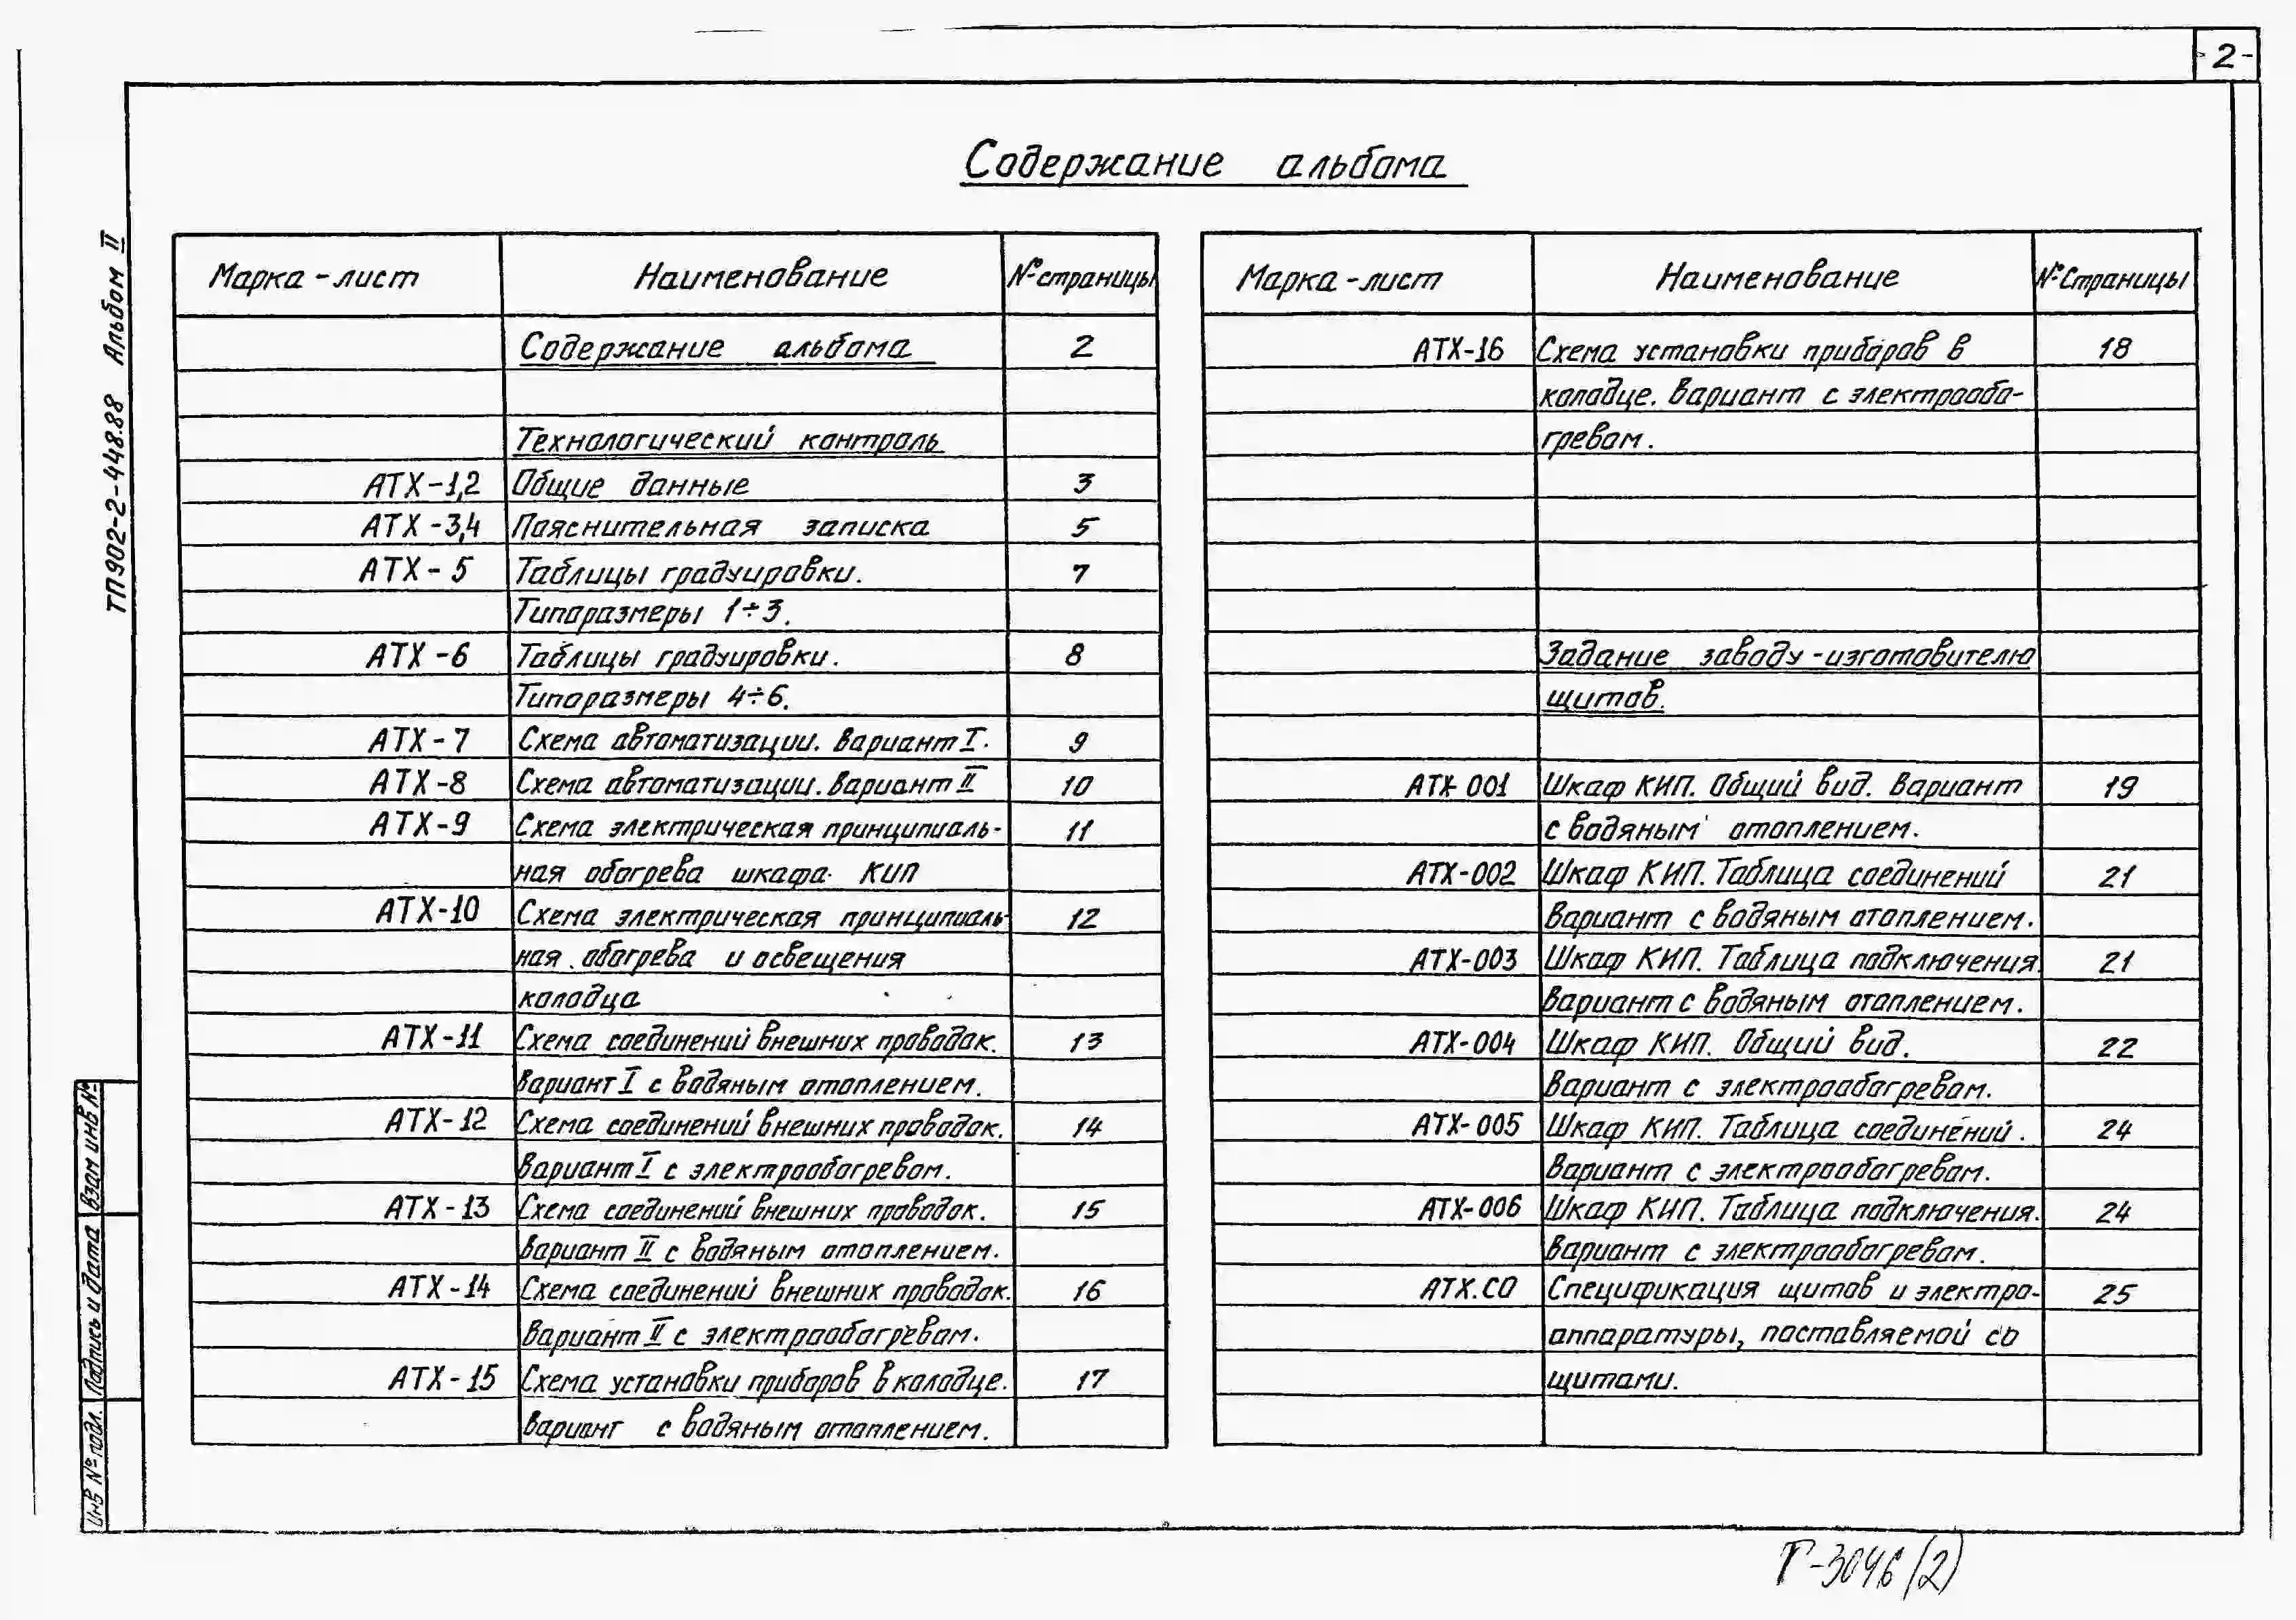 2
Содержание альбома
ТП902-2-448.88 Альбом II
Марка-лист Наименование №страницы
Содержание альбома 2
Технологический контроль
АТХ-1,2 Общие данные 3
АТХ-3,4 Пояснительная записка 5
АТХ-5 Таблицы градуировки. 7
Типоразмеры 1÷3.
АТХ-6 Таблицы градуировки. 8
Типоразмеры 4÷6.
АТХ-7 Схема автоматизации. Вариант I. 9
АТХ-8 Схема автоматизации. Вариант II 10
АТХ-9 Схема электрическая принципиаль- 11
ная обогрева шкафа КИП
АТХ-10 Схема электрическая принципиаль- 12
ная обогрева и освещения
колодца
АТХ-11 Схема соединений внешних проводок. 13
Вариант I с водяным отоплением.
АТХ-12 Схема соединений внешних проводок. 14
Вариант I с электрообогревом.
АТХ-13 Схема соединений внешних проводок. 15
Вариант II с водяным отоплением.
АТХ-14 Схема соединений внешних проводок. 16
Вариант II с электрообогревом.
АТХ-15 Схема установки приборов в колодце. 17
Вариант с водяным отоплением.
Марка-лист Наименование №Страницы
АТХ-16 Схема установки приборов в 18
колодце. Вариант с электрообо-
гревом.
Задание заводу-изготовителю
щитов.
АТХ-001 Шкаф КИП. Общий вид. Вариант 19
с водяным отоплением.
АТХ-002 Шкаф КИП. Таблица соединений 21
Вариант с водяным отоплением.
АТХ-003 Шкаф КИП. Таблица подключения. 21
Вариант с водяным отоплением.
АТХ-004 Шкаф КИП. Общий вид. 22
Вариант с электрообогревом.
АТХ-005 Шкаф КИП. Таблица соединений. 24
Вариант с электрообогревом.
АТХ-006 Шкаф КИП. Таблица подключения. 24
Вариант с электрообогревом.
АТХ.СО Спецификация щитов и электро- 25
аппаратуры, поставляемой со
щитами.
Взам инв №
Подпись и дата
Инв № подл.
Г-3046 (2)